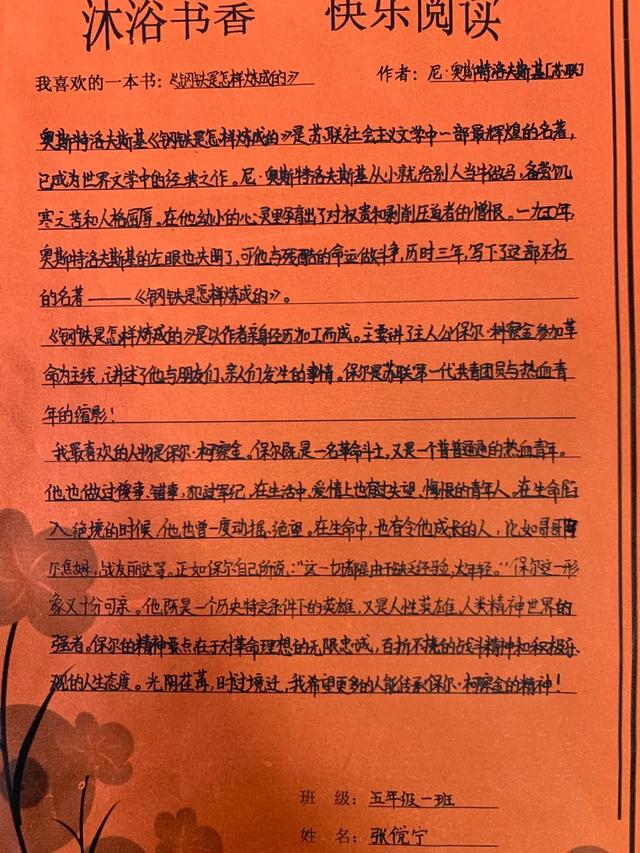 沐浴书香 快乐阅读
我喜欢的一本书:《钢铁是怎样炼成的》 作者:尼·奥斯特洛夫斯基[苏联]
奥斯特洛夫斯基《钢铁是怎样炼成的》是苏联社会主义文学中一部最辉煌的名著,
已成为世界文学中的经典之作。尼·奥斯特洛夫斯基从小就给别人当牛做马,备尝饥
寒之苦和人格屈辱。在他幼小的心灵里孕育出了对权贵和剥削压迫者的憎恨。一九三〇年,
奥斯特洛夫斯基的左眼也失明了,可他与残酷的命运做斗争,历时三年,写下了这部不朽
的名著——《钢铁是怎样炼成的》。
《钢铁是怎样炼成的》是以作者亲身经历加工而成。主要讲了主人公保尔·柯察金参加革
命为主线,讲述了他与朋友们、亲人们发生的事情。保尔是苏联第一代共青团员与热血青
年的缩影!
我最喜欢的人物是保尔·柯察金。保尔既是一名革命斗士,又是一个普普通通的热血青年。
他也做过傻事、错事,犯过军纪,在生活中、爱情上也有过失望、悔恨的青年人。在生命陷
入绝境的时候,他也曾一度动摇、绝望。在生命中,也有令他成长的人,比如哥哥阿
尔焦姆,战友丽达等。正如保尔自己所说:“这一切都是由于缺乏经验,太年轻。”保尔这一形
象又十分可亲。他既是一个历史特定条件下的英雄,又是人性英雄、人类精神世界的
强者。保尔的精神要点在于对革命理想的无限忠诚,百折不挠的战斗精神和积极乐
观的人生态度。光阴荏苒,时过境迁,我希望更多的人能传承保尔·柯察金的精神!
班 级:五年级一班
姓 名:张傥宁